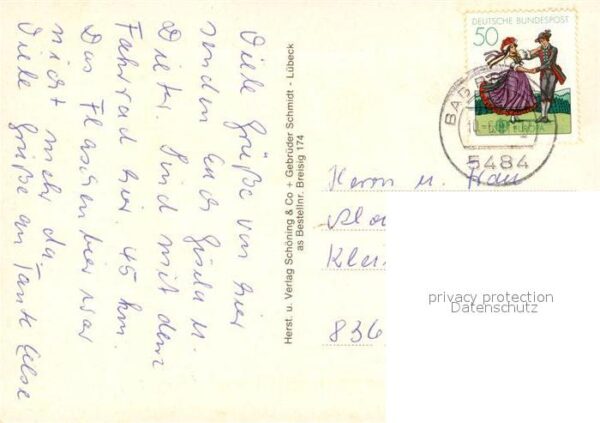 Viele Grüße von hier
senden Euch Gisela u.
Dieter. Sind mit dem
Fahrrad hier. 45 km.
Das Flaschenbier war
nicht mehr da –
Viele Grüße an Tante Else
Herst. u. Verlag Schöning & Co + Gebrüder Schmidt · Lübeck
as Bestellnr. Breisig 174
DEUTSCHE BUNDESPOST
50
EUROPA
BAD
5484
Herrn u. Frau
836
privacy protection
Datenschutz